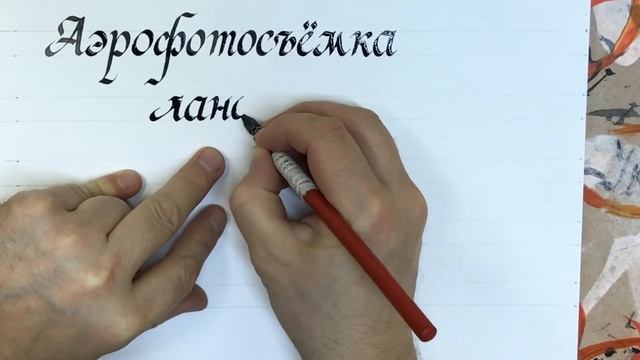 Аэрофотосъёмка
лан